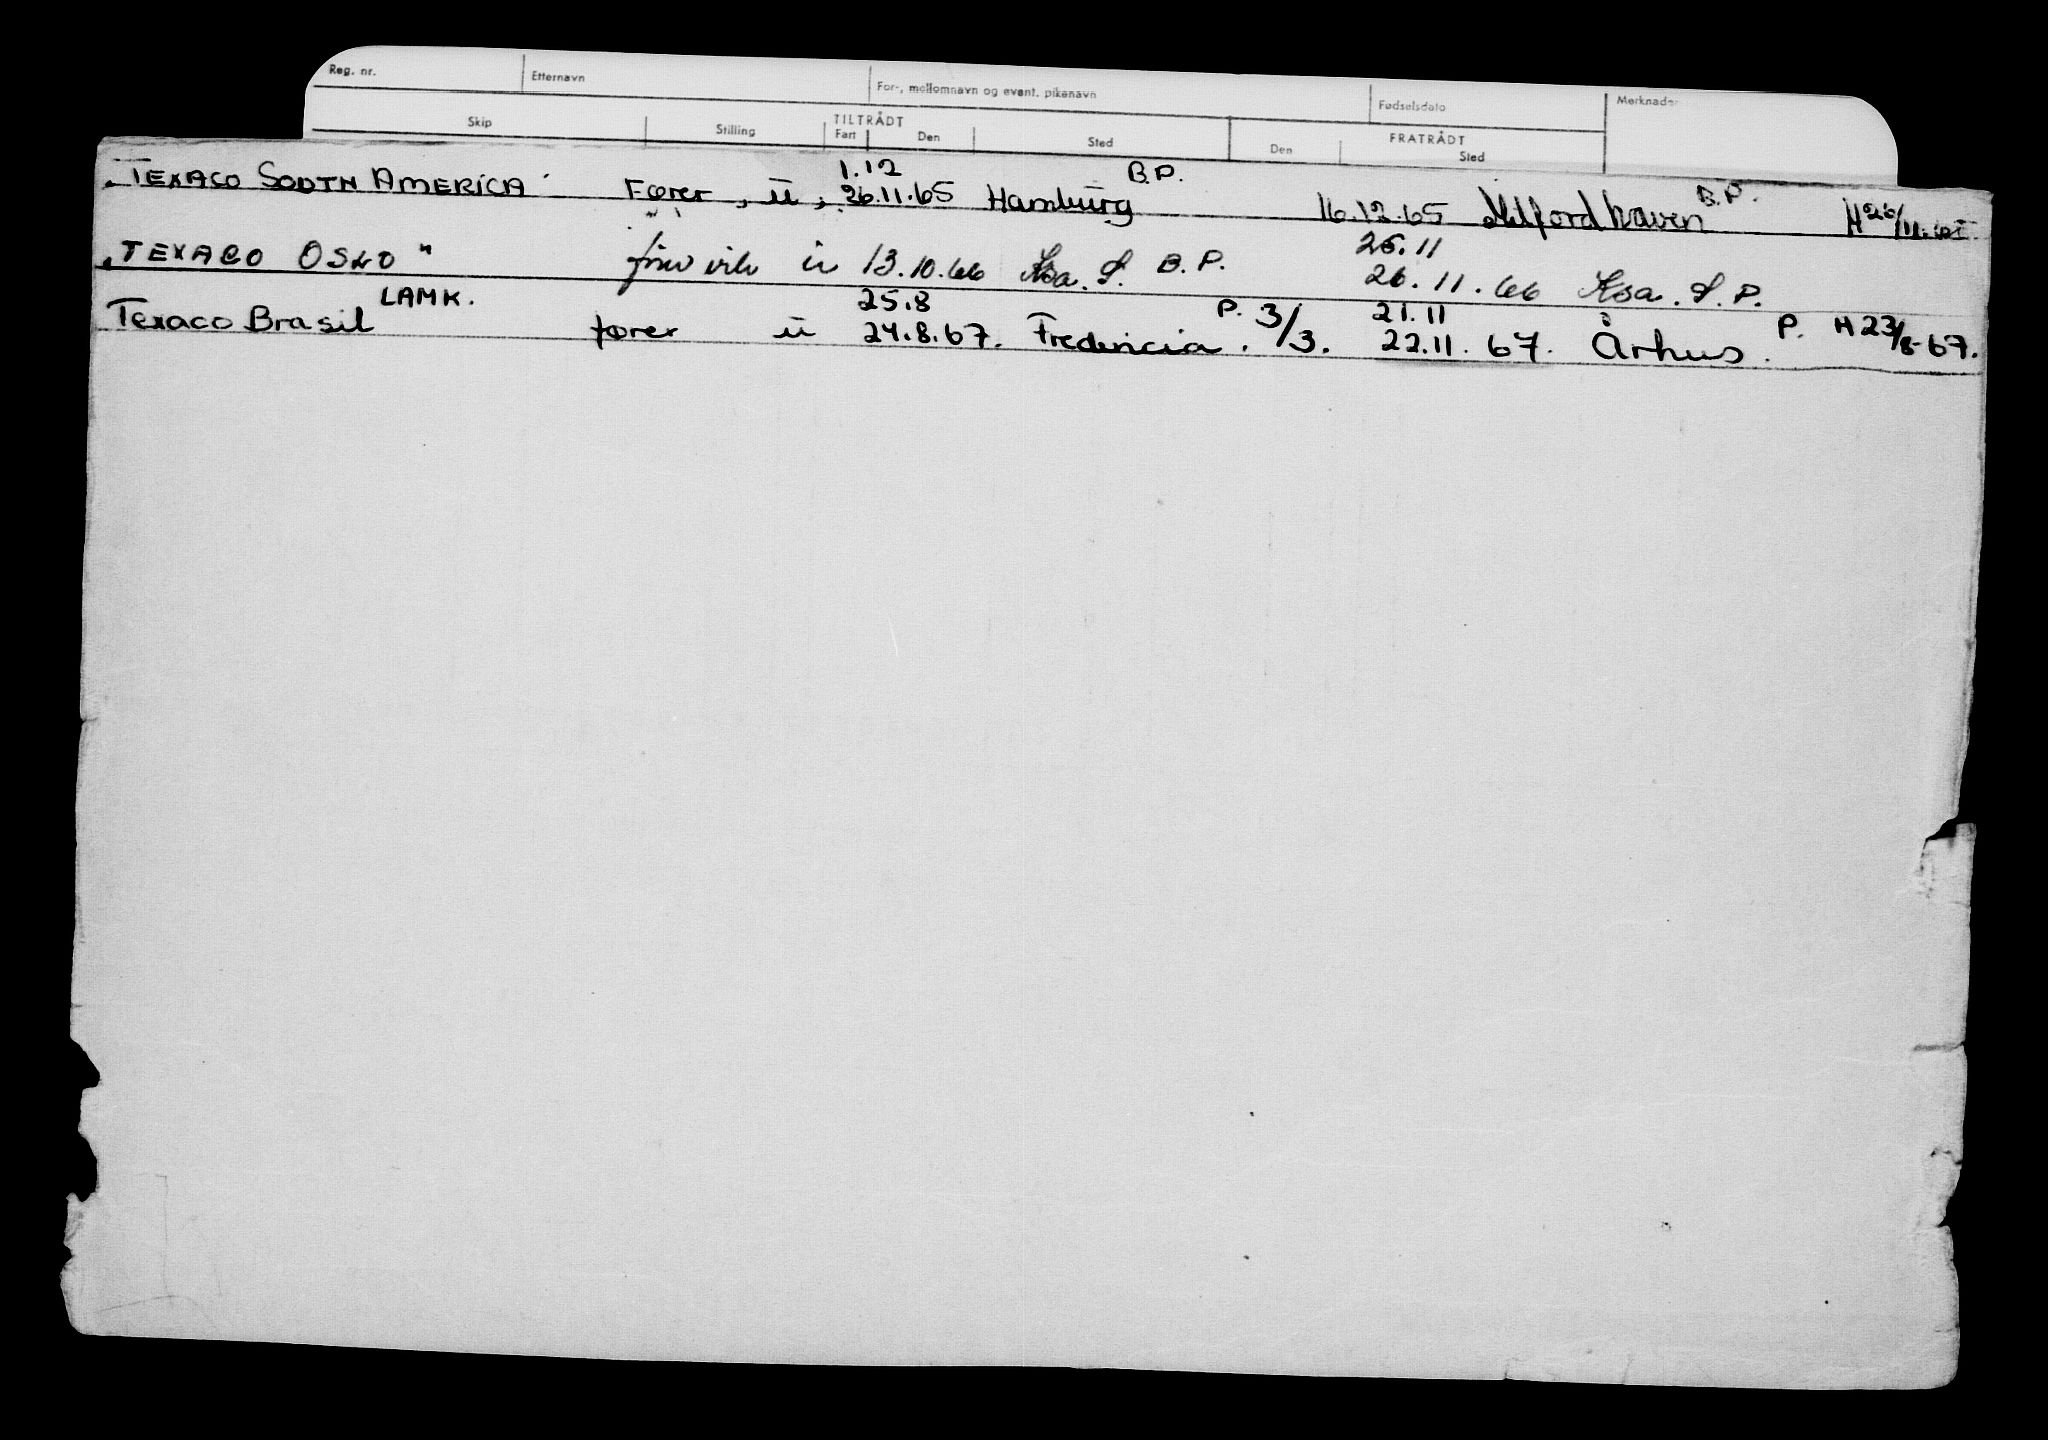 Reg. nr. Etternavn For-, mellomnavn og event. pikenavn Fødselsdato Merknader
Skip Stilling TILTRÅDT Fart Den Sted FRATRÅDT Den Sted
1.12 B.P. B.P.
"TEXACO SOUTH AMERICA" Fører, u, 26.11.65 Hamburg 16.12.65 Milford haven H 26/11-65.
25.11
"TEXACO OSLO" u 13.10.66 Kra. S. B.P. 26.11.66 Kra. S. P.
LAMK. 25.8 P. 21.11 P.
Texaco Brasil fører u 24.8.67. Fredericia. 3/3. 22.11.67. Århus. H 23/8-67.